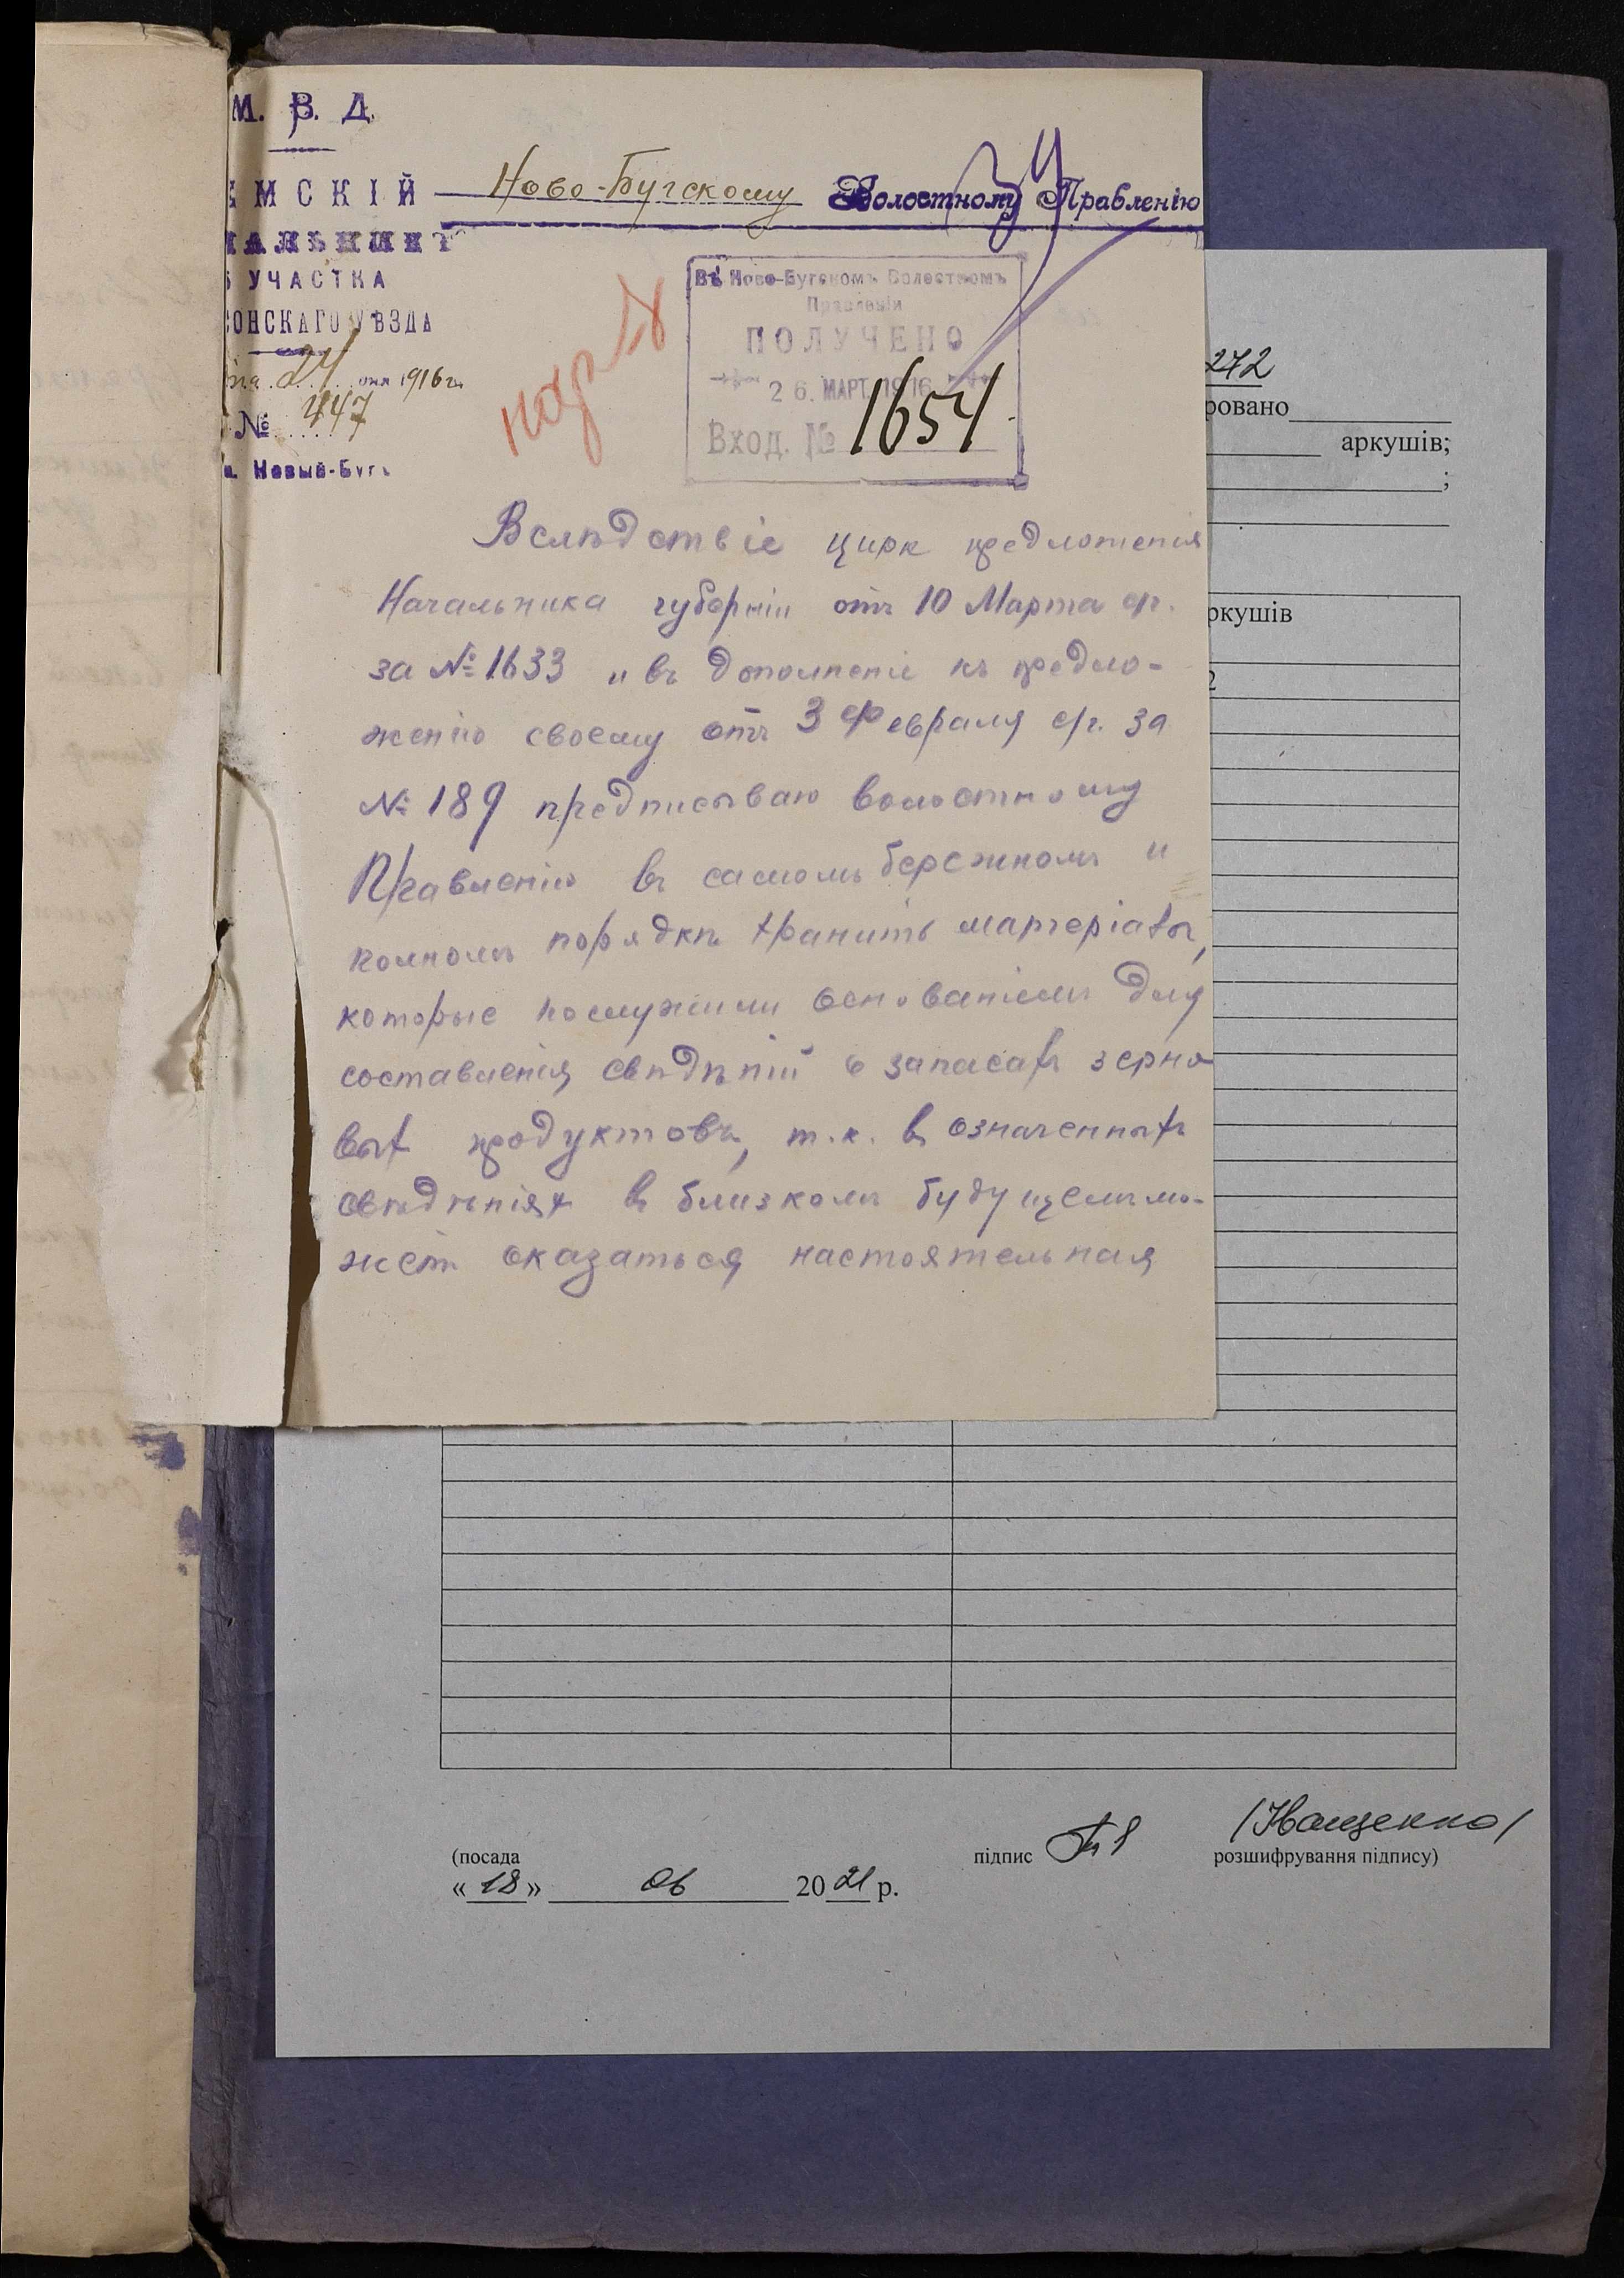 М. В. Д.
МСКІЙ
АЛЬНИКЪ
УЧАСТКА
СОНСКАГО УѢЗДА
24 1916 г.
№ 447
Новый-Бугъ
Ново-Бугскому Волостному Правленію
Въ Ново-Бугскомъ Волостномъ
Правленіи
ПОЛУЧЕНО
26. МАРТ. 1916
Вход. № 1654
Вслѣдствіе цирк предложенія
Начальника губерніи отъ 10 Марта с/г.
за № 1633 и въ дополненіе къ предло-
женію своему отъ 3 Февраля с/г. за
№ 189 предписываю волостному
Правленію въ самомъ бережномъ и
полномъ порядкѣ хранить матеріалы,
которые послужили основаніемъ для
составленія свѣдѣній о запасахъ зерно
вых продуктовъ, т.к. въ означенныхъ
свѣдѣніях въ близкомъ будущемъ мо-
жетъ оказаться настоятельная
272
ровано
аркушів;
;
ркушів
2
(посада
підпис
(Іващенко)
розшифрування підпису)
«18» 06 2021 р.